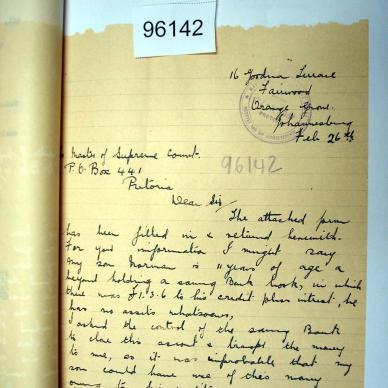 96142
16 Goodma Terrace
Fairwood
Orange Grove
Johannesburg
Feb 26th
Master of Supreme Court.
P.O Box 441
96142
Pretoria
Dear Sir
The attached form
has been filled in & returned herewith.
For your information I might say
my son Norman is 11 years of age &
beyond holding a saving Bank book, in which
there was £1.3.6 to his credit plus interest, he
has no assets whatsoever,
I asked the control of the saving Bank
to close this account & transfer the money
to me, as it was improbable that my
son could have use of this money
owing to his